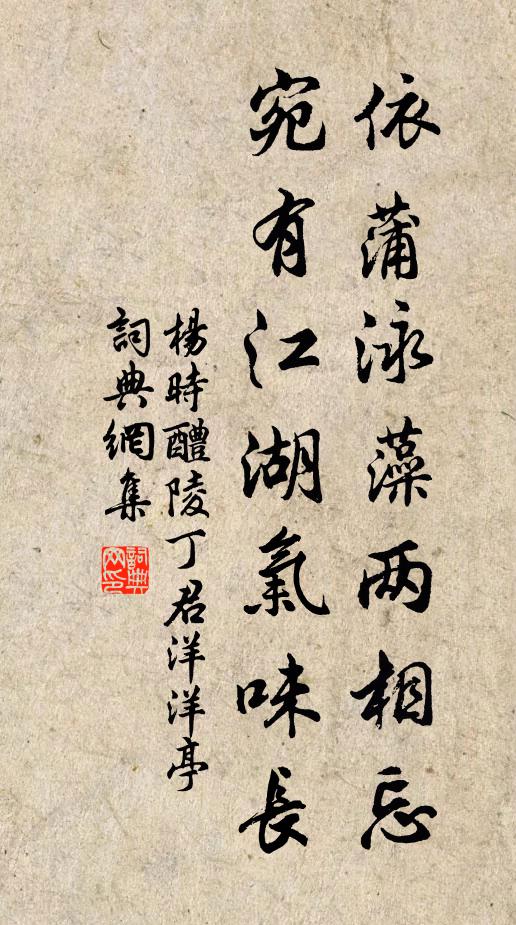 依蒲泳藻两相忘
宛有江湖氣味長
楊時醴陵丁君洋洋亭
詞典網集
詞典網印